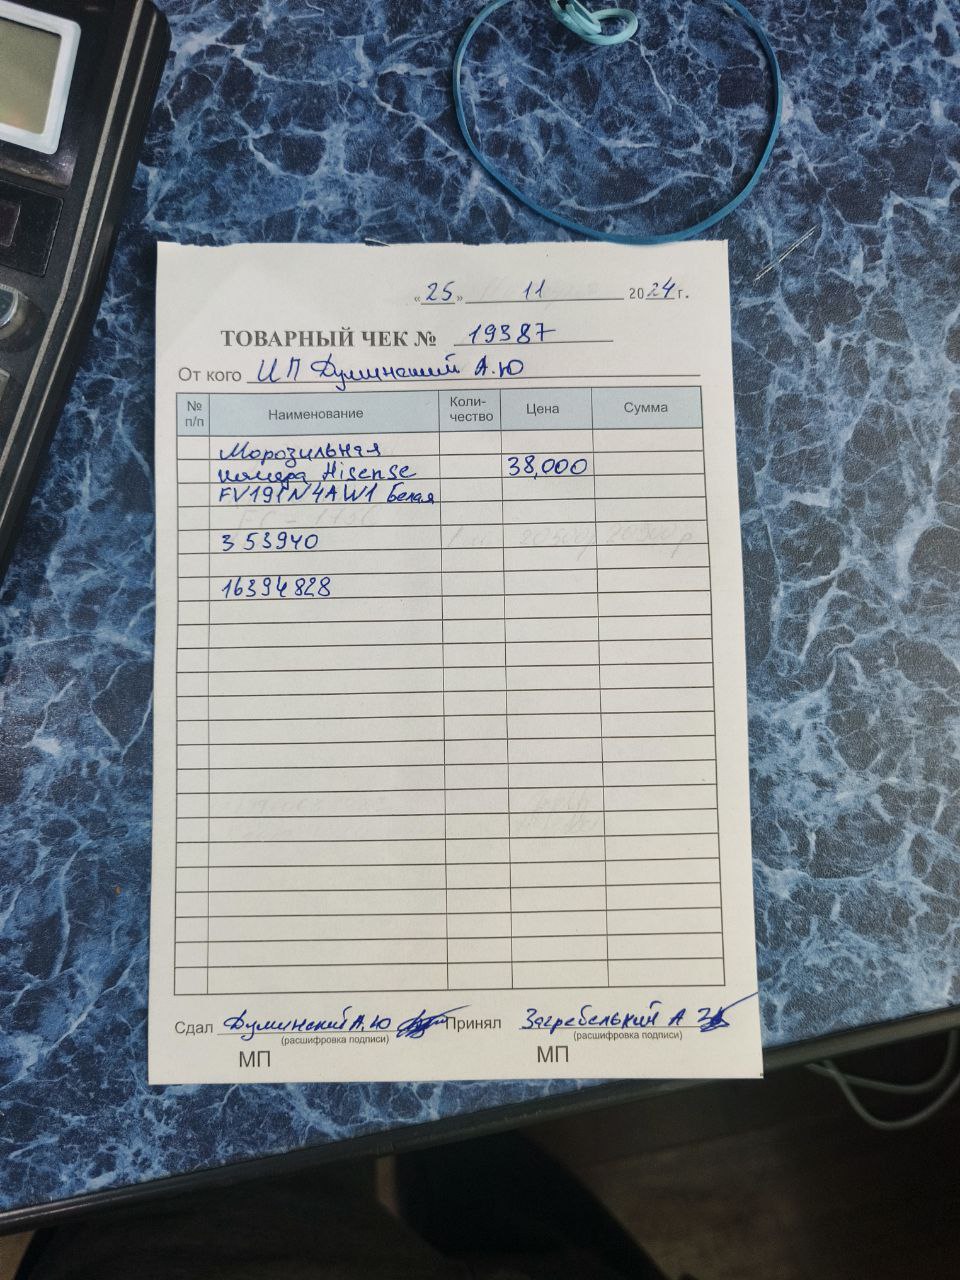 «25» 11 2024 г.
ТОВАРНЫЙ ЧЕК № 19387
От кого ИП Думинский А.Ю
№ п/п Наименование Коли-чество Цена Сумма
Морозильная
камера Hisense 38,000
FV191N4AW1 белая
353940
16394828
Сдал Думинский А.Ю Принял Загребелький А
(расшифровка подписи) (расшифровка подписи)
МП МП